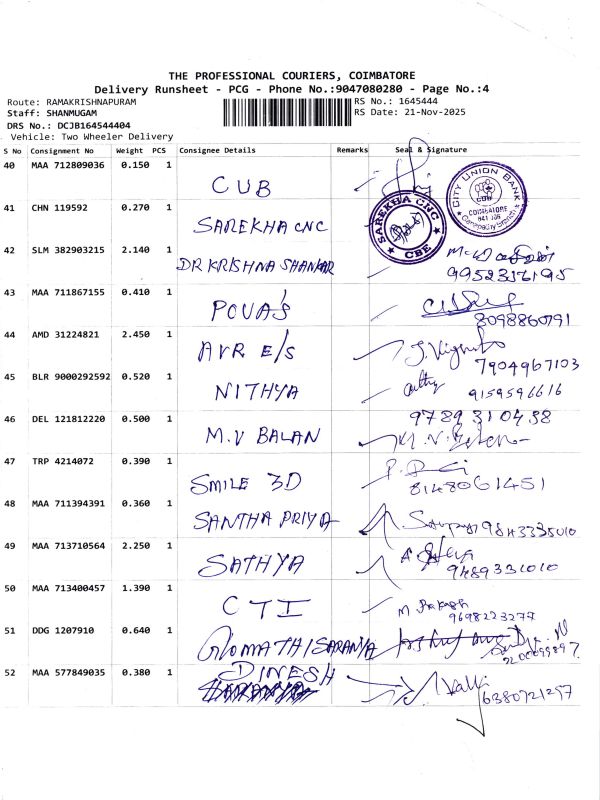 THE PROFESSIONAL COURIERS, COIMBATORE
Delivery Runsheet - PCG - Phone No.:9047080280 - Page No.:4
Route: RAMAKRISHNAPURAM
RS No.: 1645444
Staff: SHANMUGAM
RS Date: 21-Nov-2025
DRS No.: DCJB164544404
Vehicle: Two Wheeler Delivery
S No Consignment No Weight PCS Consignee Details Remarks Seal & Signature
40 MAA 712809036 0.150 1 CUB
CITY UNION BANK
CUB
COIMBATORE
641 106
41 CHN 119592 0.270 1 SAREKHA CNC
SAREKHA CNC
CBE
42 SLM 382903215 2.140 1 DR KRISHNA SHANKAR
9952316195
43 MAA 711867155 0.410 1 POVA'S
8098860791
44 AMD 31224821 2.450 1 AVR E/S
7904967103
45 BLR 9000292592 0.520 1 NITHYA
9159596616
46 DEL 121812220 0.500 1 M.V BALAN
9789310438
47 TRP 4214072 0.390 1 SMILE 3D
8148061451
48 MAA 711394391 0.360 1 SANTHA PRIYA
9843335010
49 MAA 713710564 2.250 1 SATHYA
9489331010
50 MAA 713400457 1.390 1 CTI
M Prakash
9698223277
51 DDG 1207910 0.640 1 GOMATHI SARANYA
52 MAA 577849035 0.380 1 DINESH
6380721297